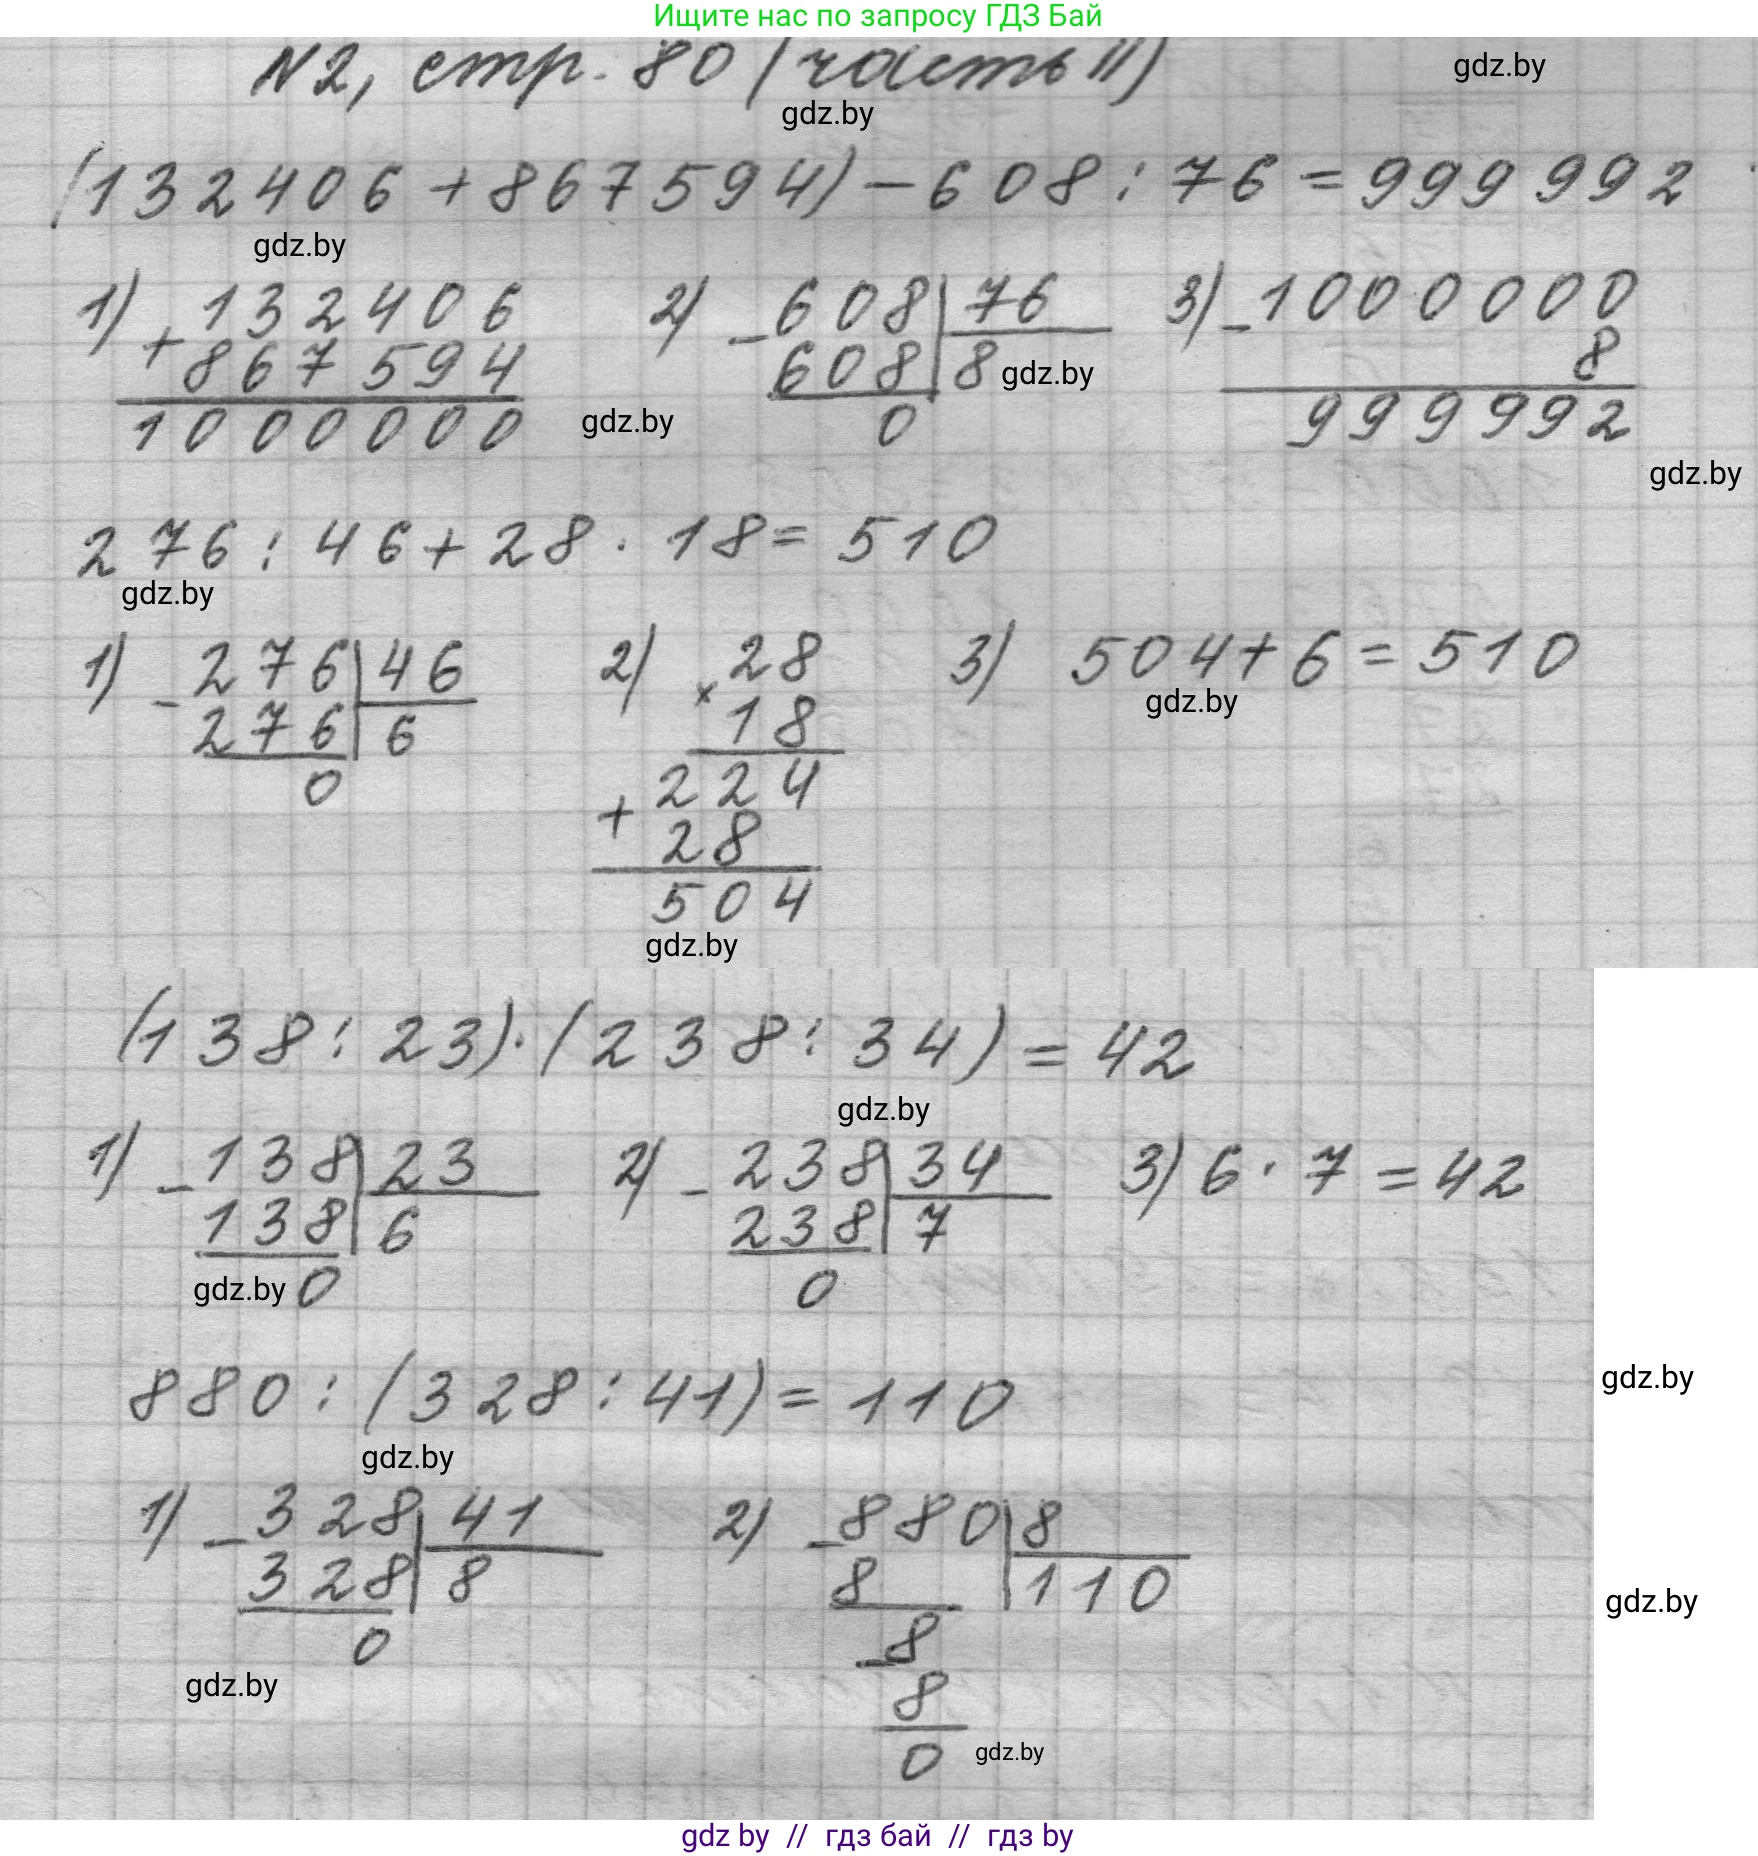 Ищите нас по запросу ГДЗ Бай
N2, стр. 80 (часть II)
gdz.by
gdz.by
(132406+867594)-608:76=999992
gdz.by
1) 132406 2) 608 76 3) 1000000
+ - -
867594 608 8 gdz.by 8
1000000 gdz.by 0 999992
gdz.by
276:46+28·18=510
gdz.by
1) 276 46 2) 28 3) 504+6=510
- × gdz.by
276 6 18
0 224
+
28
504
gdz.by
(138:23)·(238:34)=42
gdz.by
1) -138 23 2) -238 34 3) 6·7=42
138 6 238 7
gdz.by 0 0
880:(328:41)=110
gdz.by
gdz.by
1) -328 41 2) -880 8
328 8 8 110
gdz.by
0 -8
gdz.by 8
0 gdz.by
gdz by // гдз бай // гдз by